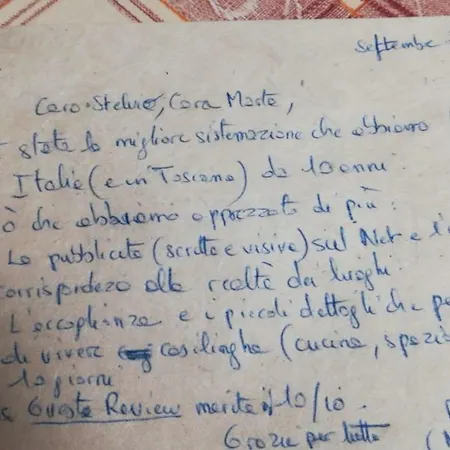 Septembre
Caro Stelvio, Cara Marta,
stata la migliore sistemazione che abbiamo
Italia (e in Toscana) da 10 anni.
ò che abbiamo apprezzato di più:
La pubblicata (scritta e visiva) sul Net e l'
corrispondeza alla realtà dei luoghi.
L'accoglienza e i piccoli dettagli che
di vivere casilinghe (cucina, spazi
10 giorni
Questa Review merita il 10/10.
Grazie per tutto